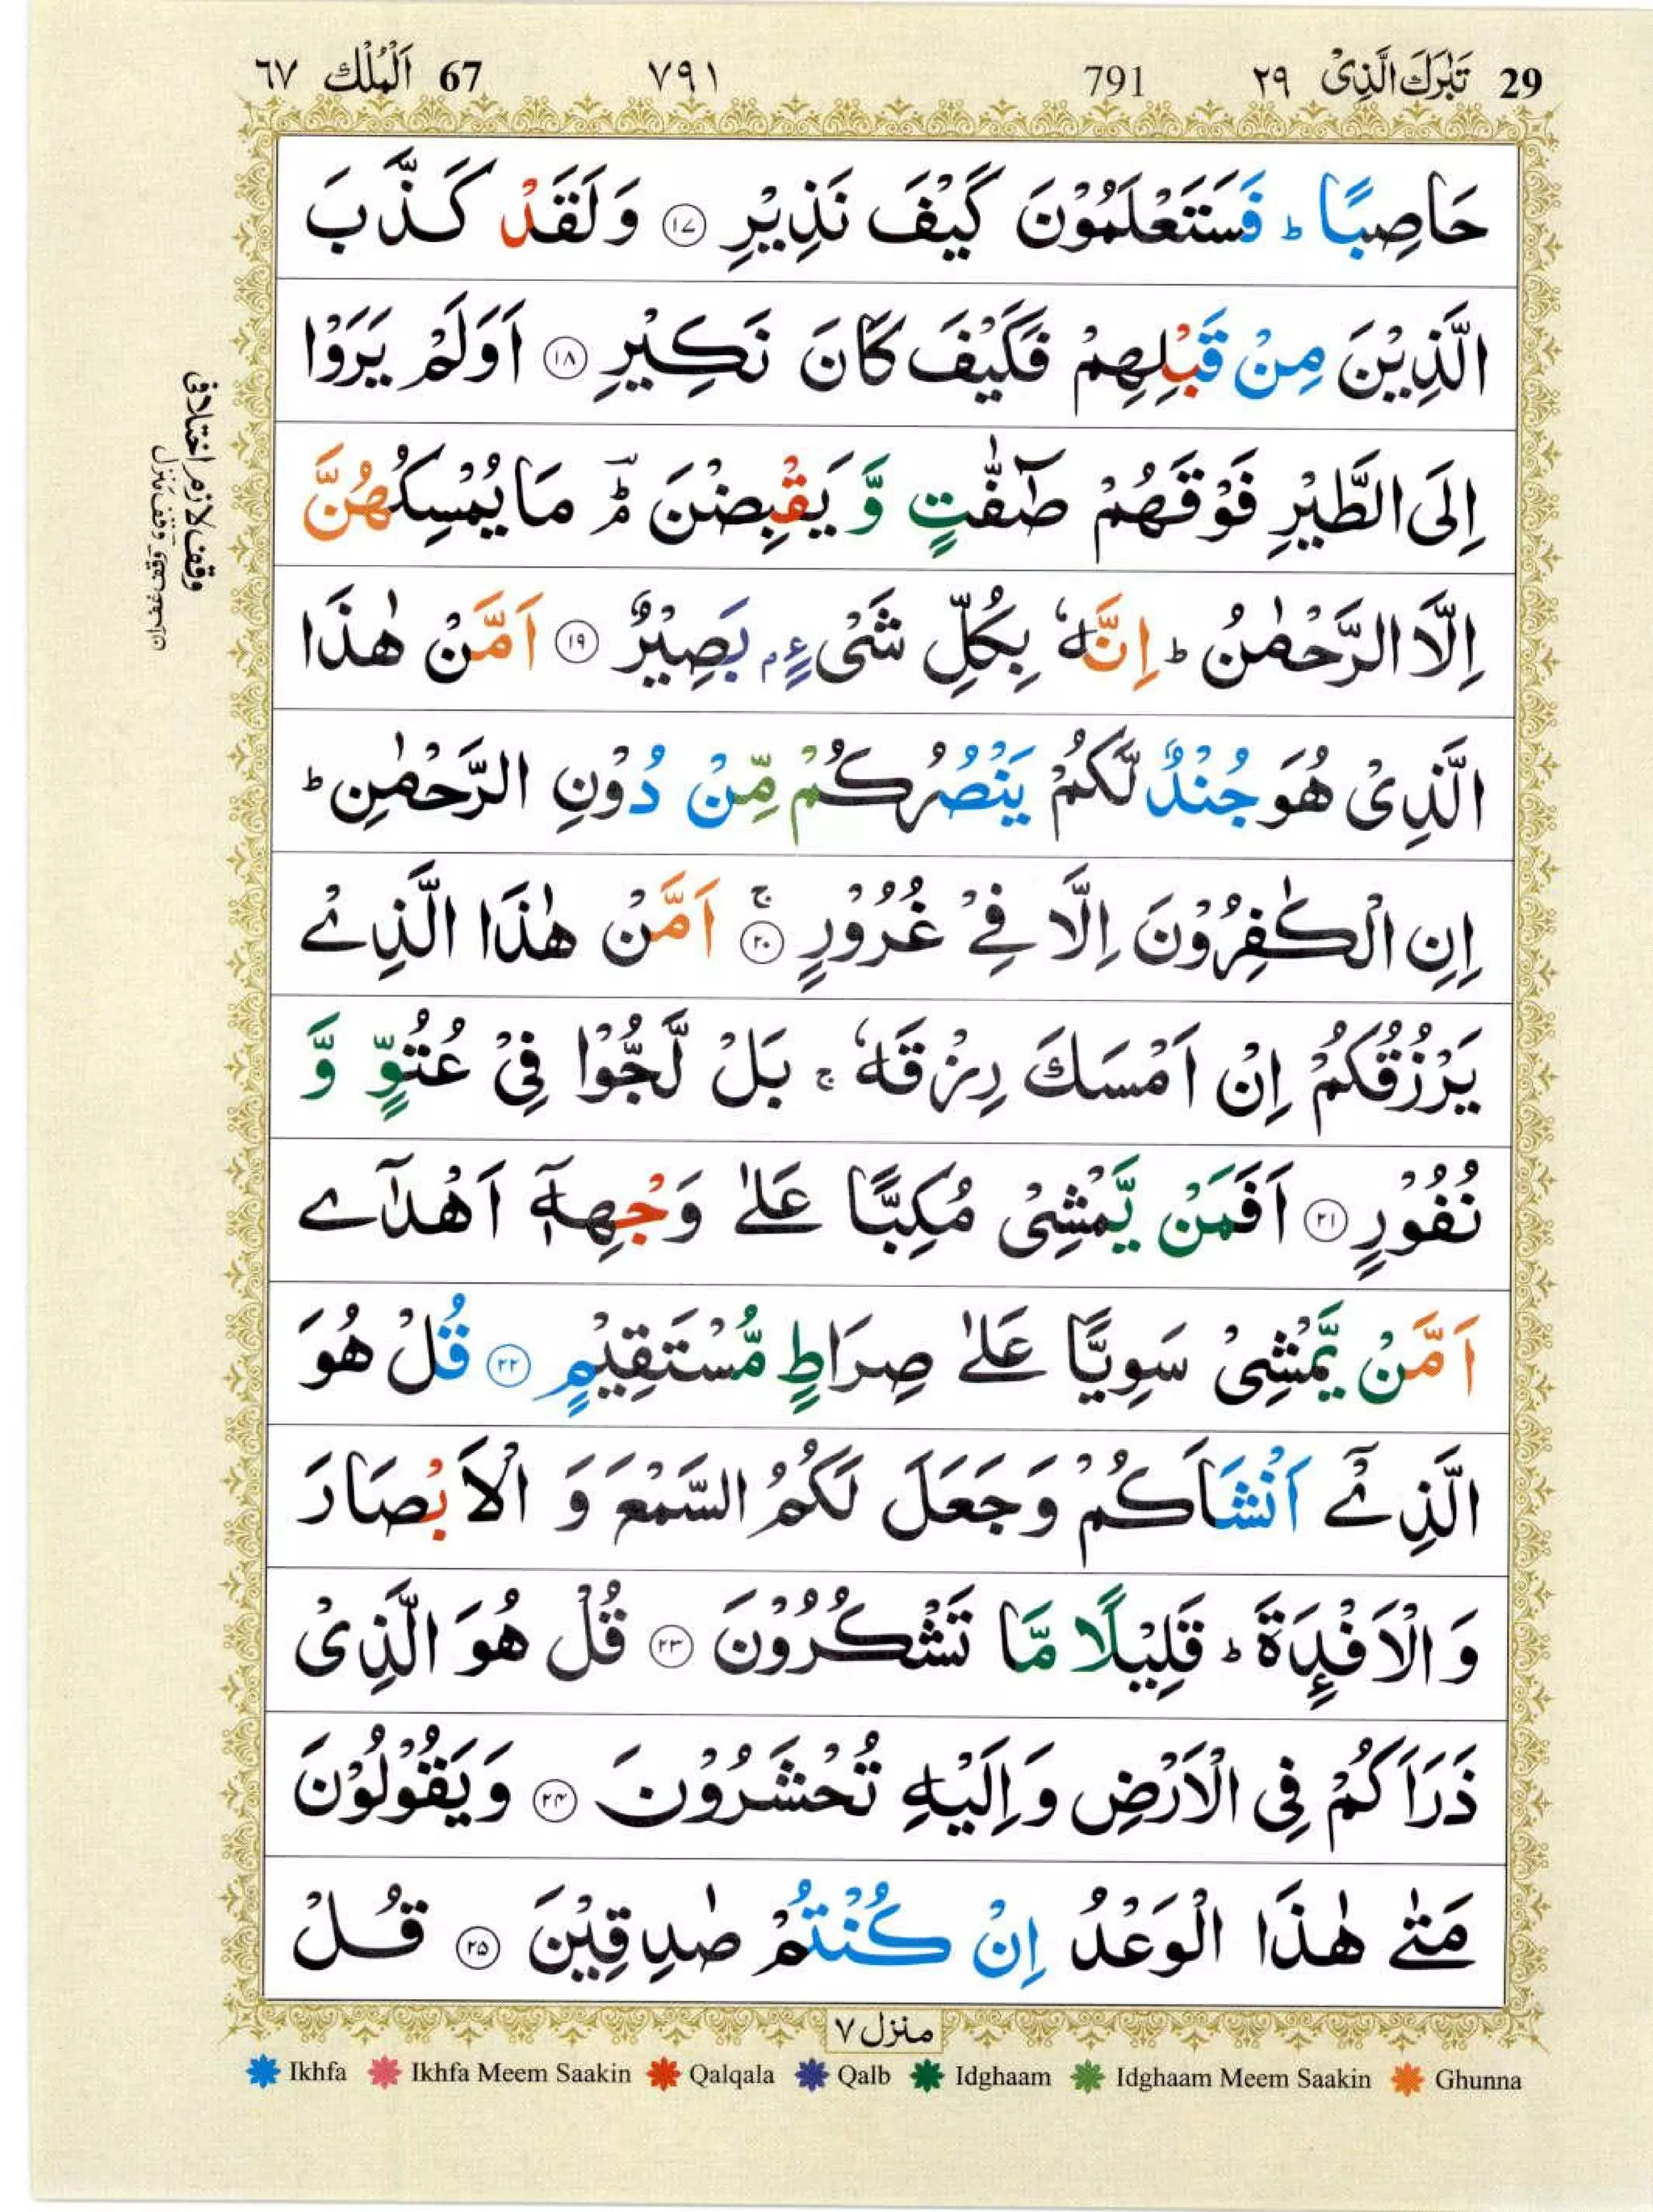 29 تَبٰرَكَ الَّذِىْ ٢٩ 791 ٧٩١ 67 اَلْمُلْكِ ٦٧
حَاصِبًا ؕ فَسَتَعْلَمُوْنَ كَيْفَ نَذِيْرِ ۝۱۷ وَلَقَدْ كَذَّبَ
الَّذِيْنَ مِنْ قَبْلِهِمْ فَكَيْفَ كَانَ نَكِيْرِ ۝۱۸ اَوَلَمْ يَرَوْا
اِلَى الطَّيْرِ فَوْقَهُمْ صٰٓفّٰتٍ وَّ يَقْبِضْنَ ؔؕۘ مَا يُمْسِكُهُنَّ
اِلَّا الرَّحْمٰنُ ؕ اِنَّهٗ بِكُلِّ شَىْءٍۭ بَصِيْرٌ ۝۱۹ اَمَّنْ هٰذَا
الَّذِىْ هُوَ جُنْدٌ لَّكُمْ يَنْصُرُكُمْ مِّنْ دُوْنِ الرَّحْمٰنِ ؕ
اِنِ الْكٰفِرُوْنَ اِلَّا فِىْ غُرُوْرٍ ۝۲۰ۚ اَمَّنْ هٰذَا الَّذِىْ
يَرْزُقُكُمْ اِنْ اَمْسَكَ رِزْقَهٗ ۚ بَلْ لَّجُّوْا فِىْ عُتُوٍّ وَّ
نُفُوْرٍ ۝۲۱ اَفَمَنْ يَّمْشِىْ مُكِبًّا عَلٰى وَجْهِهٖۤ اَهْدٰٓى
اَمَّنْ يَّمْشِىْ سَوِيًّا عَلٰى صِرَاطٍ مُّسْتَقِيْمٍ ۝۲۲ قُلْ هُوَ
الَّذِىْۤ اَنْشَاَكُمْ وَجَعَلَ لَكُمُ السَّمْعَ وَ الْاَبْصَارَ
وَ الْاَفْـِٕدَةَ ؕ قَلِيْلًا مَّا تَشْكُرُوْنَ ۝۲۳ قُلْ هُوَ الَّذِىْ
ذَرَاَكُمْ فِى الْاَرْضِ وَاِلَيْهِ تُحْشَرُوْنَ ۝۲۴ وَيَقُوْلُوْنَ
مَتٰى هٰذَا الْوَعْدُ اِنْ كُنْتُمْ صٰدِقِيْنَ ۝۲۵ قُلْ
وقف لازم اختلافی
وقف منزل وقف غفران
منزل ۷
Ikhfa Ikhfa Meem Saakin Qalqala Qalb Idghaam Idghaam Meem Saakin Ghunna